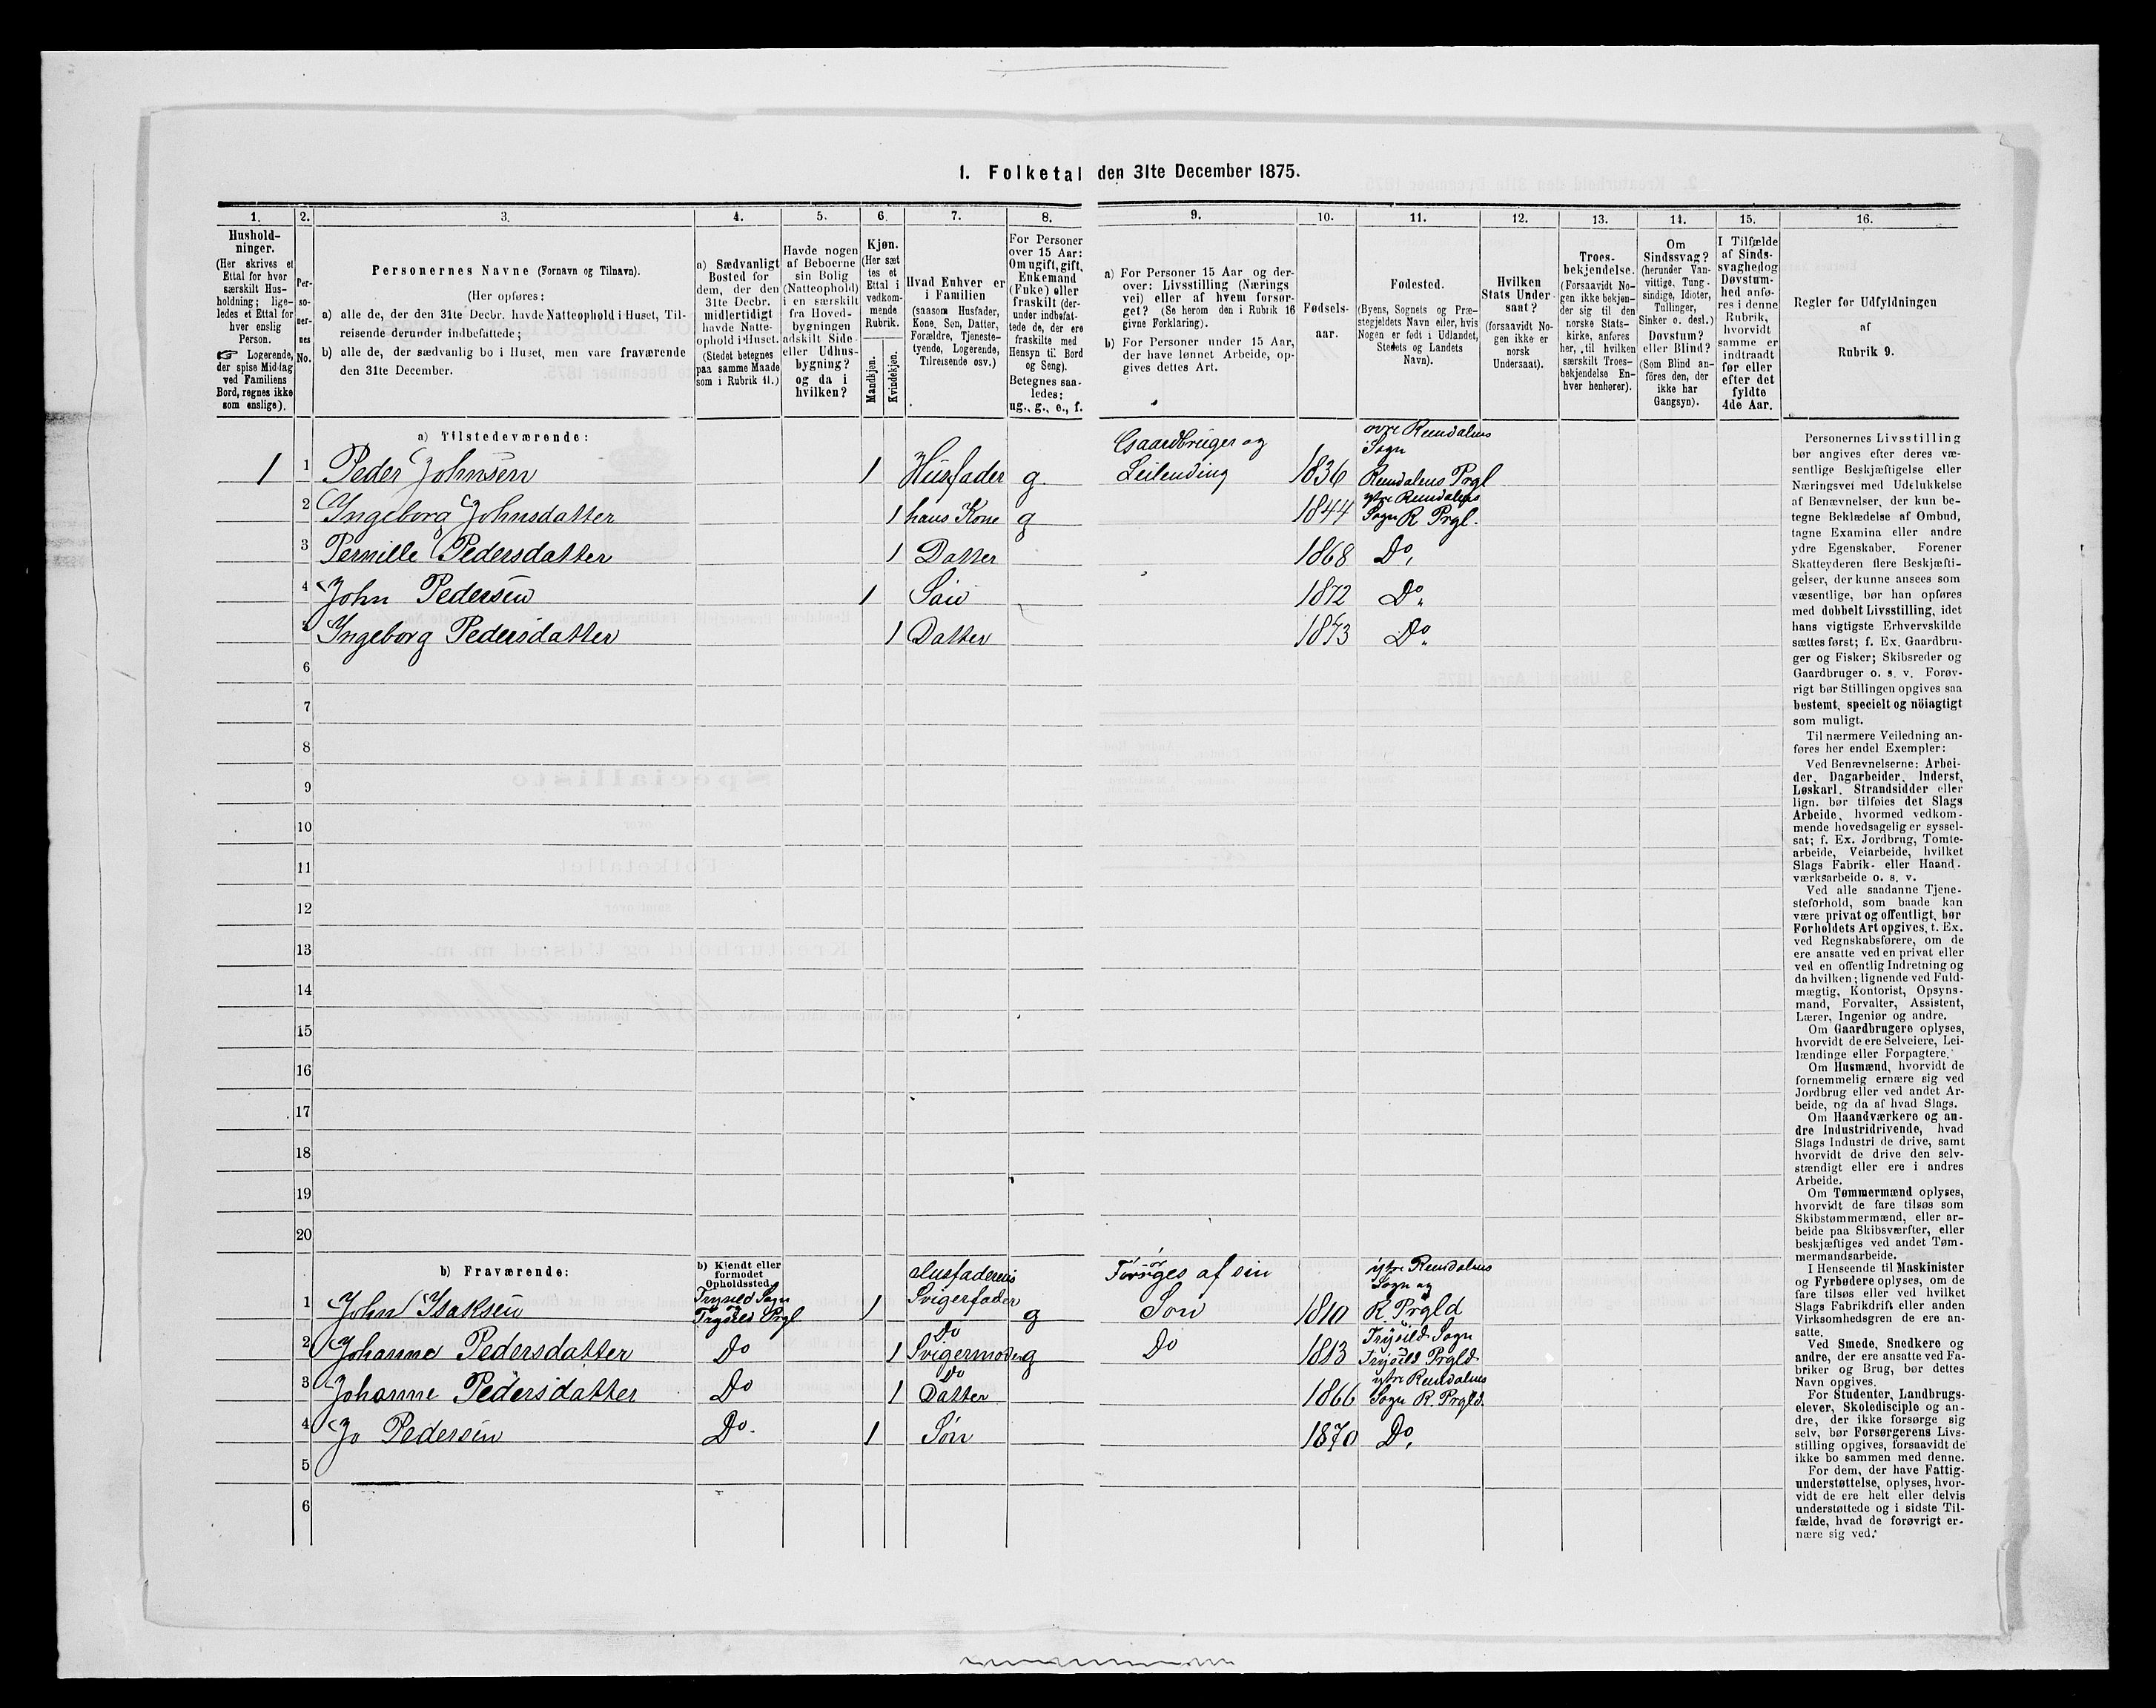 1. Folketal den 31te December 1875.
1. 2. 3. 4. 5. 6. 7. 8. 9. 10. 11. 12. 13. 14. 15. 16.
Hushold-
ninger.
(Her skrives et
Ettal for hver
særskilt Hus-
holdning; lige-
ledes et Ettal for
hver enslig
Person.
☞ Logerende,
der spise Middag
ved Familiens
Bord, regnes ikke
som enslige).
Per-
so-
ner-
nes
No.
Personernes Navne (Fornavn og Tilnavn).
(Her opføres:
a) alle de, der den 31te Decbr. havde Natteophold i Huset, Til-
reisende derunder indbefattede;
b) alle de, der sædvanlig bo i Huset, men vare fraværende
den 31te December.
a) Sædvanligt
Bosted for
dem, der den
31te Decbr.
midlertidigt
havde Natte-
ophold i Huset.
(Stedet betegnes
paa samme Maade
som i Rubrik 11.)
Havde nogen
af Beboerne
sin Bolig
(Natteophold)
i en særskilt
fra Hoved-
bygningen
adskilt Side-
eller Udhus-
bygning?
og da i
hvilken?
Kjøn.
(Her sæt-
tes et
Ettal i
vedkom-
mende
Rubrik.
Mandkjøn.
Kvindekjøn.
Hvad Enhver er
i Familien
(saasom Husfader,
Kone, Søn, Datter,
Forældre, Tjeneste-
tyende, Logerende,
Tilreisende osv.)
For Personer
over 15 Aar:
Om ugift, gift,
Enkemand
(Enke) eller
fraskilt (der-
under indbefat-
tede de, der ere
fraskilte med
Hensyn til Bord
og Seng).
Betegnes saa-
ledes:
ug., g., e., f.
a) For Personer 15 Aar og der-
over: Livsstilling (Nærings
vei) eller af hvem forsør-
get? (Se herom den i Rubrik 16
givne Forklaring).
b) For Personer under 15 Aar,
der have lønnet Arbeide, op-
gives dettes Art.
Fødsels-
aar.
Fødested.
(Byens, Sognets og Præ-
stegjeldets Navn eller, hvis
Nogen er født i Udlandet,
Stedets og Landets
Navn).
Hvilken
Stats Under-
saat?
(forsaavidt No-
gen ikke er
norsk
Undersaat).
Troes-
bekjendelse.
(Forsaavidt No-
gen ikke bekjen-
der sig til den
norske Stats-
kirke, anføres
her, til hvilken
særskilt Troes-
bekjendelse En-
hver henhører).
Om
Sindssvag?
(herunder Van-
vittige, Tung-
sindige, Idioter,
Tullinger,
Sinker o. desl.)
Døvstum?
eller Blind?
(Som Blind an-
föres den, der
ikke har
Gangsyn).
I Tilfælde
af Sinds-
svaghed og
Døvstum-
hed anfø-
res i denne
Rubrik,
hvorvidt
samme er
indtraadt
før eller
efter det
fyldte
4de Aar.
Regler for Udfyldningen
af
Rubrik 9.
a) Tilstedeværende:
1 1 Peder Johnsen 1 Husfader g. Gaardbruger og Leilending 1836 øvre Rendalens Sogn Rendalens Prgl
2 Ingeborg Johnsdatter 1 hans Kone g 1844 ytre Rendalens Sogn R Prgl.
3 Pernille Pedersdatter 1 Datter 1868 Do,
4 John Pedersen 1 Søn 1872 Do
5 Ingeborg Pedersdatter 1 Datter 1873 Do
6
7
8
9
10
11
12
13
14
15
16
17
18
19
20
b) Fraværende:
b) Kjendt eller
formodet
Opholdssted.
1 John Isaksen Trysild Sogn og Trysild Prgl 1 Husfaderens Svigerfader g Forsørges af sin Søn 1810 ytre Rendalens Sogn og R Prgld
2 Johanne Pedersdatter Do 1 Do Svigermoder g Do 1813 Trysild Sogn Trysild Prgld.
3 Johanne Pedersdatter Do 1 Do Datter 1866 ytre Rendalens Sogn R. Prgld.
4 Jo Pedersen Do. 1 Søn 1870 Do,
5
6
Personernes Livsstilling
bør angives efter deres væ-
sentlige Beskjæftigelse eller
Næringsvei med Udelukkelse
af Benævnelser, der kun be-
tegne Beklædelse af Ombud,
tagne Examina eller andre
ydre Egenskaber. Forener
Skatteyderen flere Beskjæfti-
gelser, der kunne ansees som
væsentlige, bør han opføres
med dobbelt Livsstilling, idet
hans vigtigste Erhvervskilde
sættes først; f. Ex. Gaardbru-
ger og Fisker; Skibsreder og
Gaardbruger o. s. v. Forøv-
rigt bør Stillingen opgives saa
bestemt, specielt og nöiagtigt
som muligt.
Til nærmere Veiledning an-
føres her endel Exempler:
Ved Benævnelserne: Arbei-
der, Dagarbeider, Inderst,
Løskarl, Strandsidder eller
lign. bør tilføies det Slags
Arbeide, hvormed vedkom-
mende hovedsagelig er syssel-
sat; f. Ex. Jordbrug, Tomte-
arbeide, Veiarbeide, hvilket
Slags Fabrik- eller Haand-
værksarbeide o. s. v.
Ved alle saadanne Tjene-
steforhold, som baade kan
være privat og offentligt, bør
Forholdets Art opgives, f. Ex.
ved Regnskabsførere, om de
ere ansatte ved en privat eller
ved en offentlig Indretning og
da hvilken; lignende ved Fuld-
mægtig, Kontorist, Opsyns-
mand, Forvalter, Assistent,
Lærer, Ingeniør og andre.
Om Gaardbrugere oplyses,
hvorvidt de ere Selveiere, Lei-
lændinge eller Forpagtere.
Om Husmænd, hvorvidt de
fornemmelig ernære sig ved
Jordbrug eller ved andet Ar-
beide, og da af hvad Slags.
Om Haandværkere og an-
dre Industridrivende, hvad
Slags Industri de drive, samt
hvorvidt de drive den selv-
stændigt eller ere i andres
Arbeide.
Om Tømmermænd oplyses,
hvorvidt de fare tilsøs som
Skibstømmermænd, eller ar-
beide paa Skibsværfter, eller
beskjæftiges ved andet Tøm-
mermandsarbeide.
I Henseende til Maskinister
og Fyrbødere oplyses, om de
fare tilsøs eller ved hvilket
Slags Fabrikdrift eller anden
Virksomhedsgren de ere an-
satte.
Ved Smede, Snedkere og
andre, der ere ansatte ved Fa-
briker og Brug, bør dettes
Navn opgives.
For Studenter, Landbrugs-
elever, Skoledisciple og an-
dre, der ikke forsørge sig
selv, bør Forsørgerens Livs-
stilling opgives, forsaavidt de
ikke bo sammen med denne.
For dem, der have Fattig-
understøttelse, oplyses, hvor-
vidt de ere helt eller delvis
understøttede og i sidste Til-
fælde, hvad de forøvrigt er-
nære sig ved.